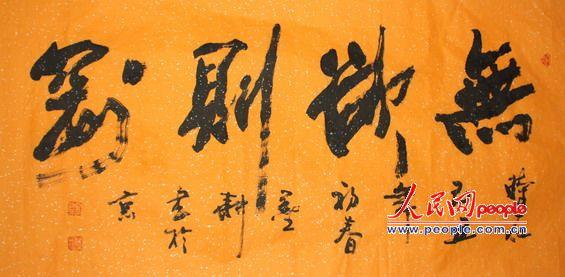 無欲則剛
時在
己丑
年
初春
墨
耕
書於
京
人民网people
www.people.com.cn